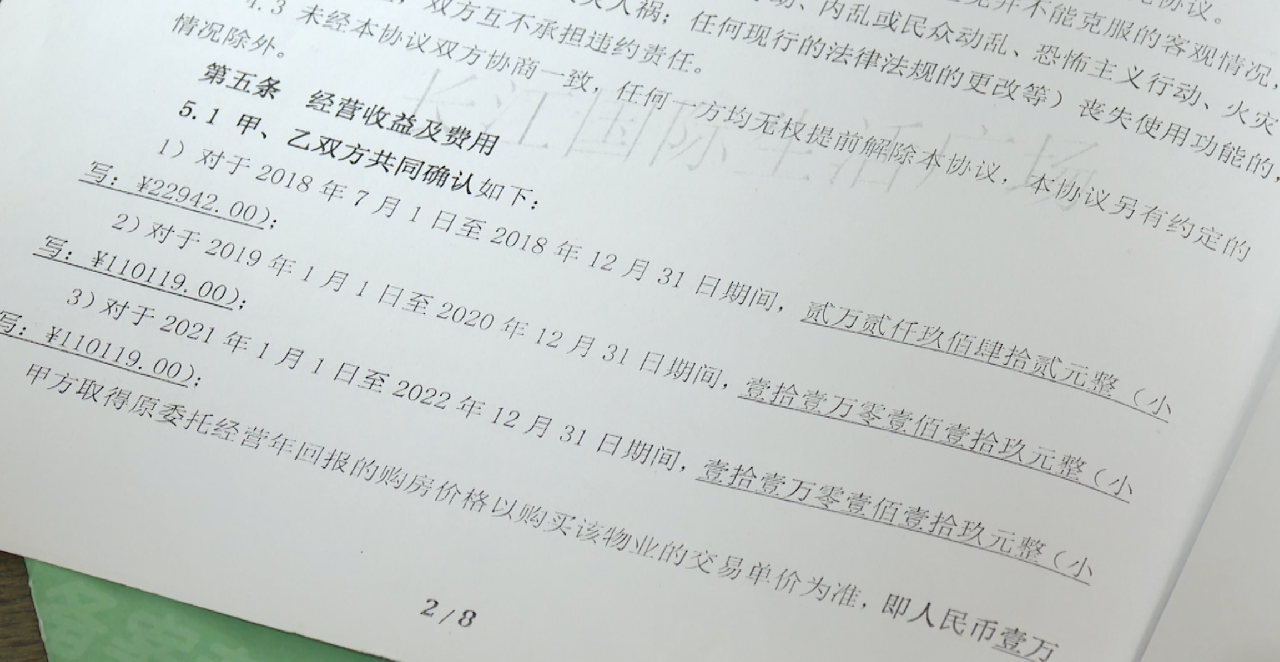 免并不能克服的客观情况，
动、内乱或民众动乱、恐怖主义行动、火灾
人祸；任何现行的法律法规的更改等）丧失使用功能的，
双方互不承担违约责任。
4.3 未经本协议双方协商一致，任何一方均无权提前解除本协议，本协议另有约定的
情况除外。
第五条 经营收益及费用
5.1 甲、乙双方共同确认如下：
1）对于 2018 年 7 月 1 日至 2018 年 12 月 31 日期间，贰万贰仟玖佰肆拾贰元整（小
写：¥22942.00）；
2）对于 2019 年 1 月 1 日至 2020 年 12 月 31 日期间，壹拾壹万零壹佰壹拾玖元整（小
写：¥110119.00）；
3）对于 2021 年 1 月 1 日至 2022 年 12 月 31 日期间，壹拾壹万零壹佰壹拾玖元整（小
写：¥110119.00）；
甲方取得原委托经营年回报的购房价格以购买该物业的交易单价为准，即人民币壹万
2/8
长江国际生活广场